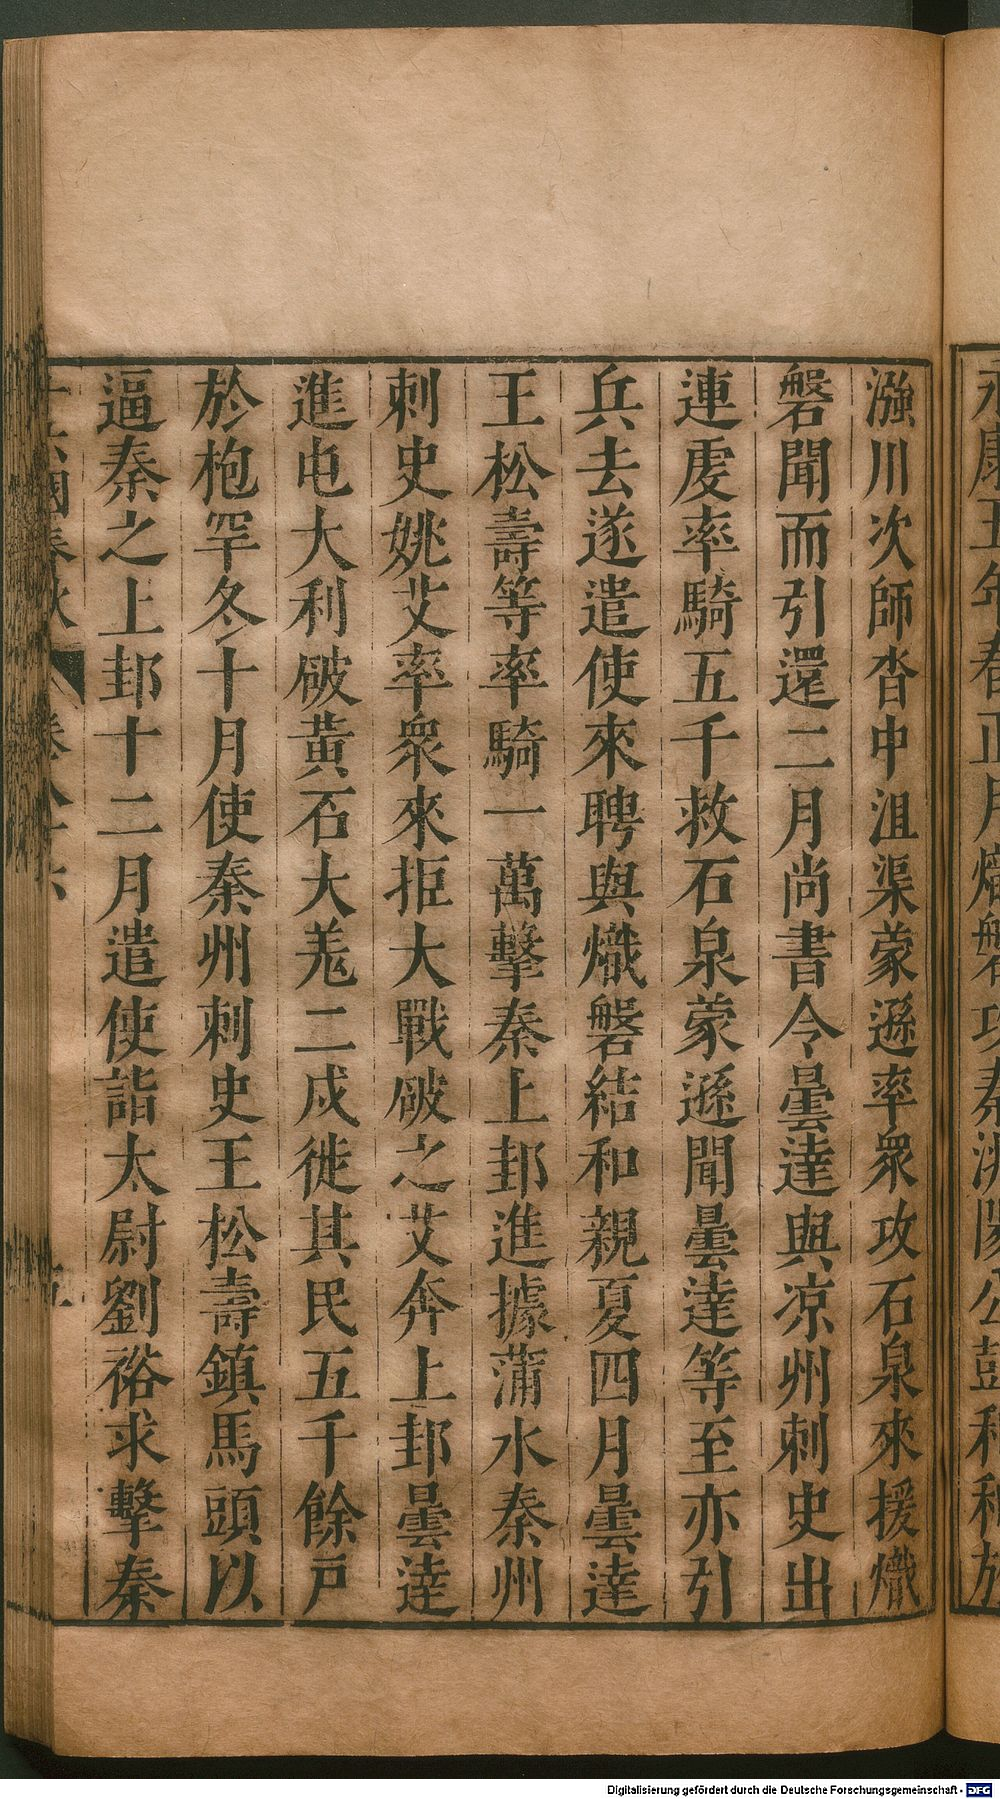 漒川次師沓中沮渠蒙遜率衆攻石泉來援熾
磐聞而引還二月尚書令曇達與凉州刺史出
連虔率騎五千救石泉蒙遜聞曇達等至亦引
兵去遂遣使來聘與熾磐結和親夏四月曇達
王松壽等率騎一萬擊秦上邽進據蒲水秦州
刺史姚艾率衆來拒大戰破之艾奔上邽曇達
進屯大利破黃石大羌二戍徙其民五千餘戶
於枹罕冬十月使秦州刺史王松壽鎮馬頭以
逼秦之上邽十二月遣使詣太尉劉裕求擊秦
Digitalisierung gefördert durch die Deutsche Forschungsgemeinschaft - DFG